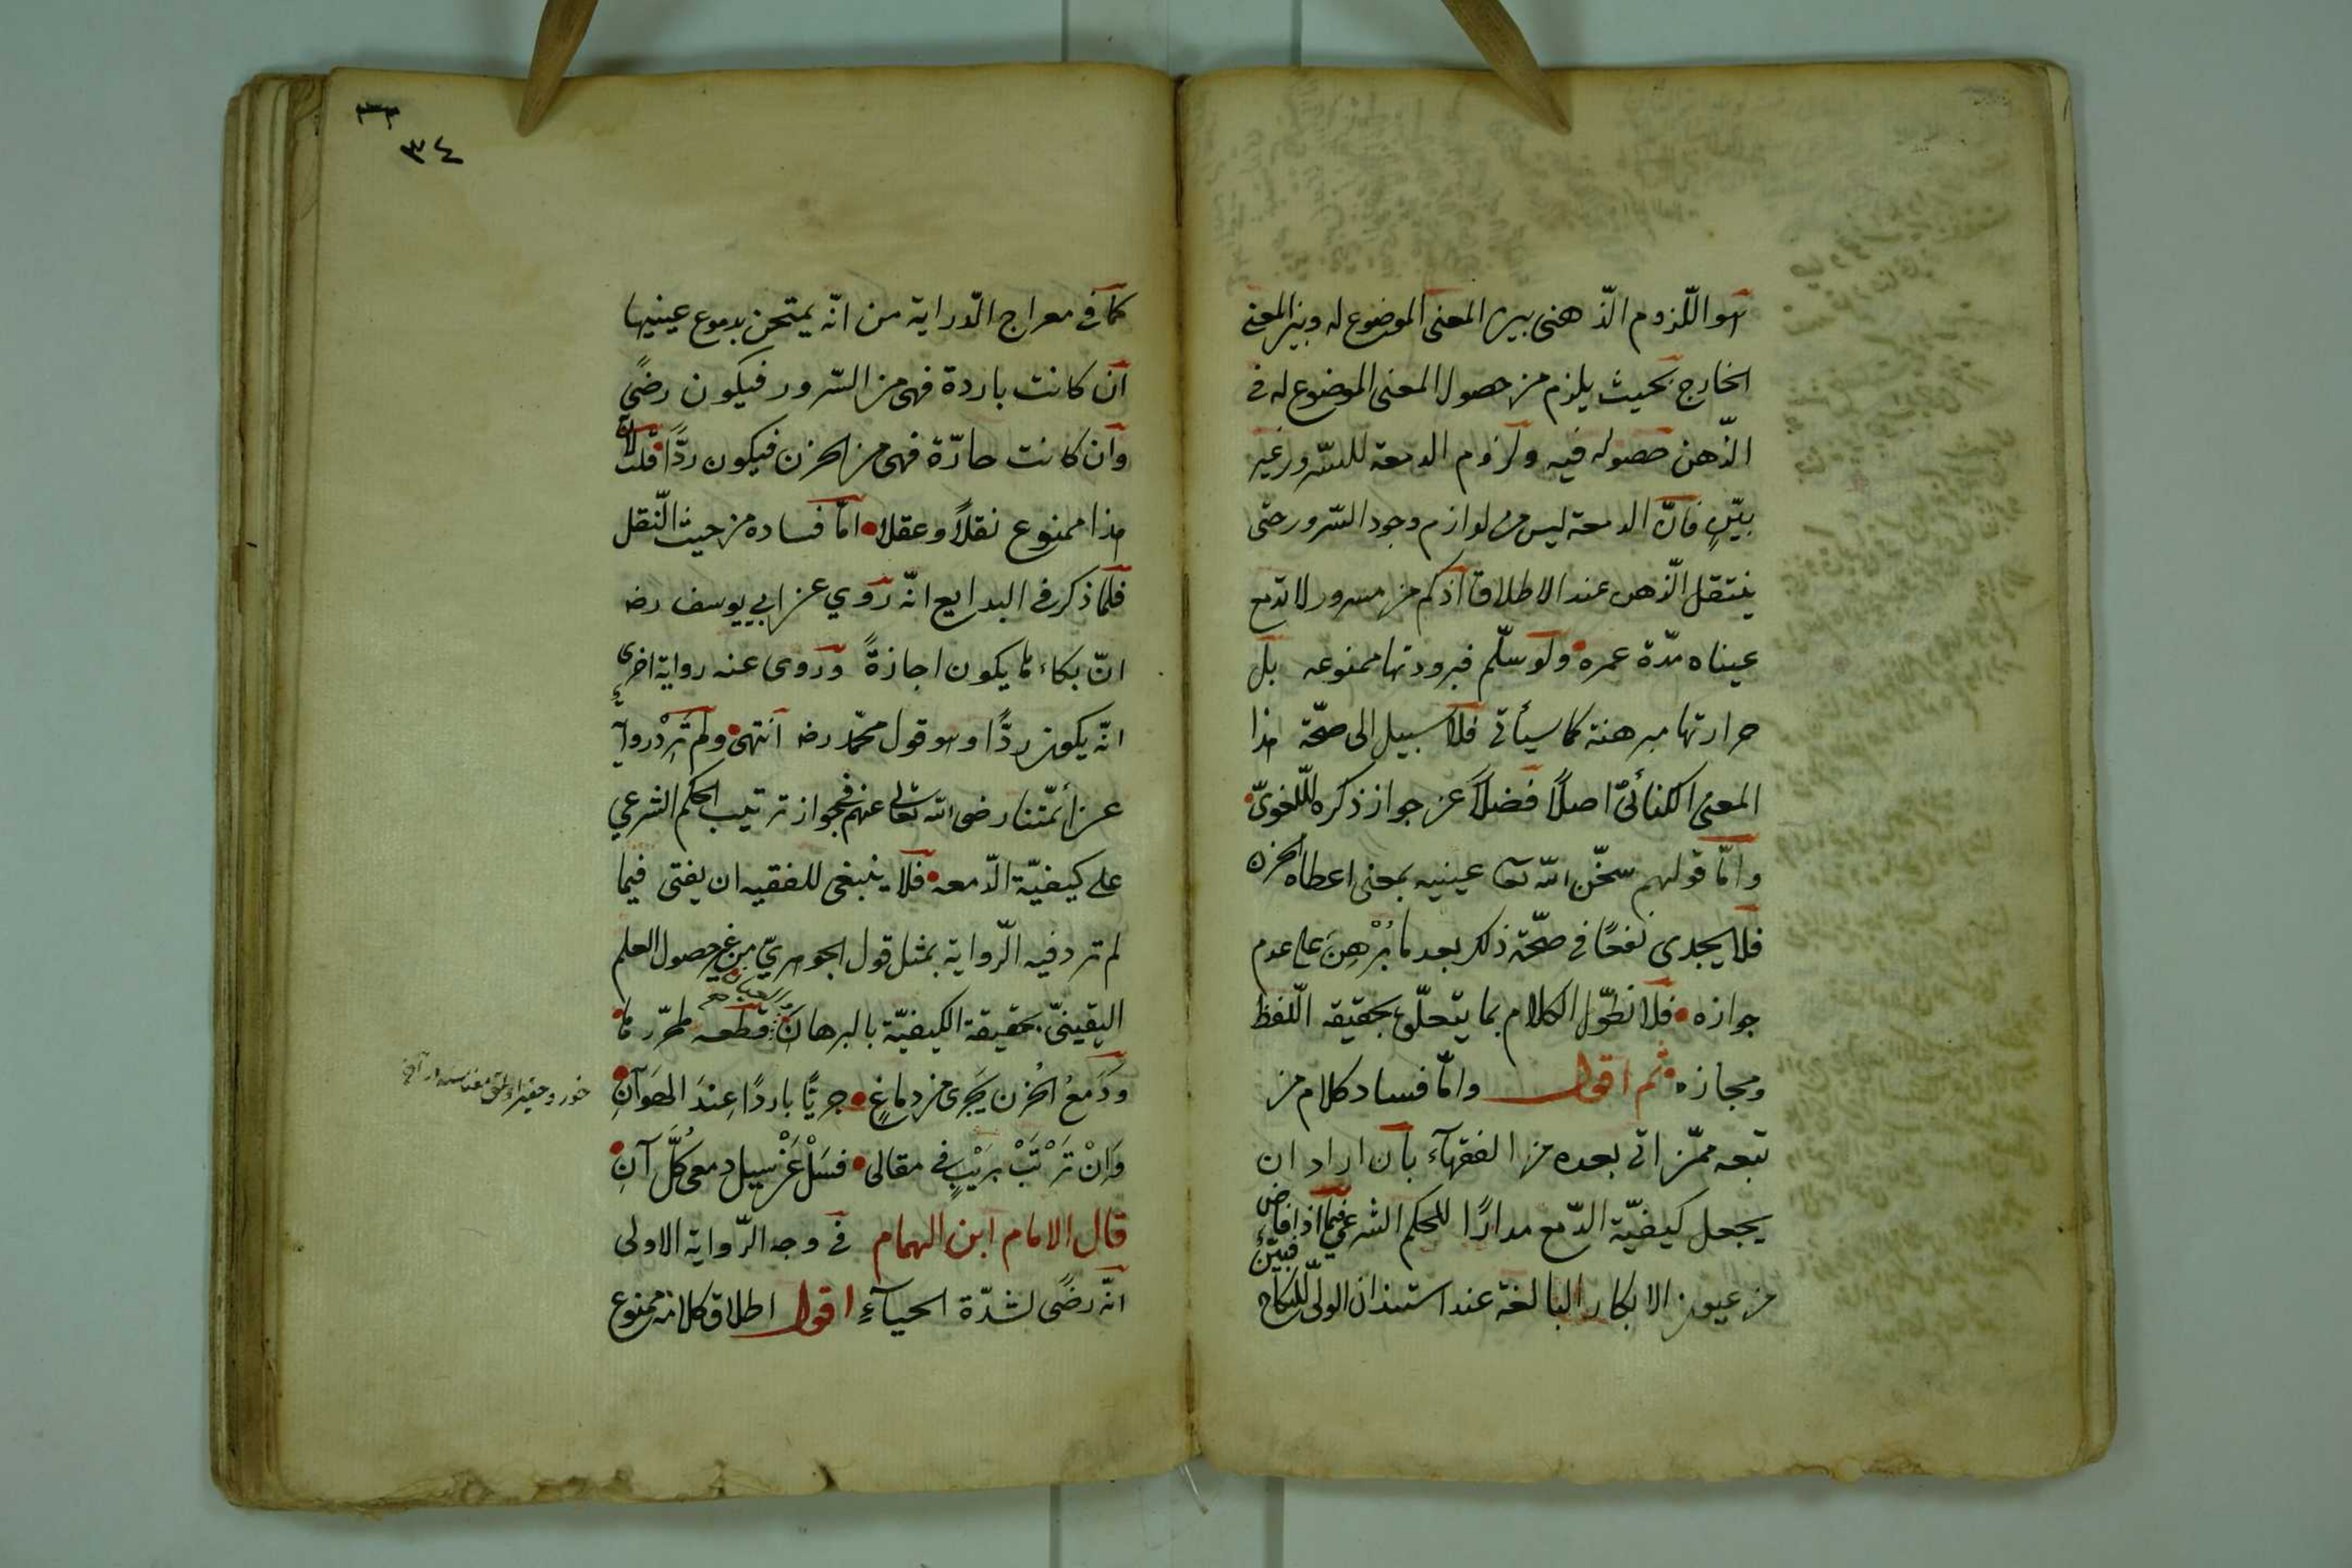 هو اللّزوم الذّهنى بين المعنى الموضوع له وبين المعنى
الخارج بحيث يلزم من حصول المعنى الموضوع له فى
الذّهن حصوله فيه ولزوم الدمعة للسّرور غير
بيّنٍ فانّ الدمعة ليس من لوازم وجود السّرور حتّى
ينتقل الذّهن عند الاطلاق اذ كم من مسرور لا تدمع
عيناه مدّة عمره ولو سلّم فبرودتها ممنوعه بل
حرارتها مبرهنة كما سيأتى فلا سبيل الى صحّة هذا
المعنى الكنائىّ اصلاً فضلاً عن جواز ذكره للّغوىّ
وامّا قولهم سخّن الله تعا عينيه بمعنى اعطاه الحزن
فلا يجدى نفعًا فى صحّة ذلك بعد ما بُرْهِنَ على عدم
جوازه فلا نطوّل الكلام بما يتعلّق بحقيقة اللّفظ
ومجازه ثم اقول وامّا فساد كلام من
تبعه ممّن اتى بعده من الفقهآء بان اراد ان
يجعل كيفيّة الدّمع مدارًا للحكم الشرعىّ فيما اذا فاض
من عيون الابكار البالغة عند استئذان الولىّ للنّكاح فبيّن
٣٣
٣٤
كما فى معراج الدّراية من انّه يمتحن بدموع عينيها
ان كانت باردة فهى من السّرور فيكون رضىً
وان كانت حارّة فهى من الحزن فيكون ردًّا قلت لانّ
هذا ممنوع نقلاً وعقلا امّا فساده من حيث النّقل
فلما ذكر فى البدايع انّه روي عن ابي يوسف رضه
انّ بكاءها يكون اجازةً وروى عنه رواية اخرى
انّه يكون ردًّا وهو قول محمّد رضه انتهى ولم تَرِدْ رواية
عن أئمّتنا رضى الله تعالى عنهم فى جواز ترتيب الحكم الشرعي
على كيفيّة الدّمعه فلا ينبغى للفقيه ان يفتى فيما
لم ترد فيه الرّواية بمثل قول الجوهريّ من غير حصول العلم
اليقينىّ بحقيقة الكيفيّة بالبرهان قطعه لمحرّرها
ودَمعُ الحُزن يَجرى من دماغٍ جريًّا باردًا عِندَ الهَوَآنِ
وَانْ تَرْتَبْ بِرَيْبٍ فى مقالى فسَلْ عَنْ سيل دمعى كُلَّ آنِ
قال الامام ابن الهمام فى وجه الرّواية الاولى
انّه رضًى لشدّة الحيآءِ اقول اطلاق كلامه ممنوع